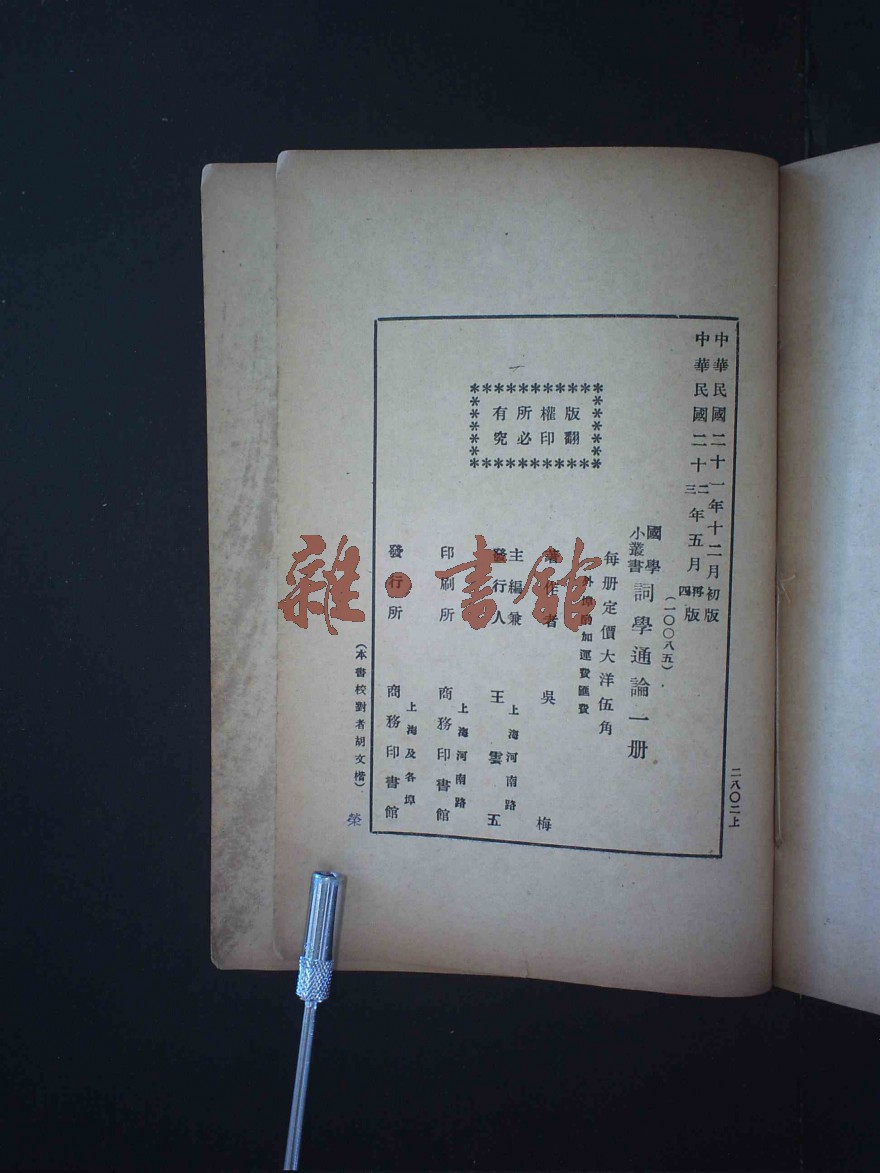 中華民國二十一年十二月初版
中華民國二十三年五月四版
二
再
(一〇〇八五)
國學
小叢書
詞學通論一册
每册定價大洋伍角
外埠酌加運費匯費
版權所有
翻印必究
著作者
吳梅
主編兼
發行人
上海河南路
王雲五
印刷所
上海河南路
商務印書館
發行所
上海及各埠
商務印書館
(本書校對者胡文楷)
榮
二八〇二上
雜·書館